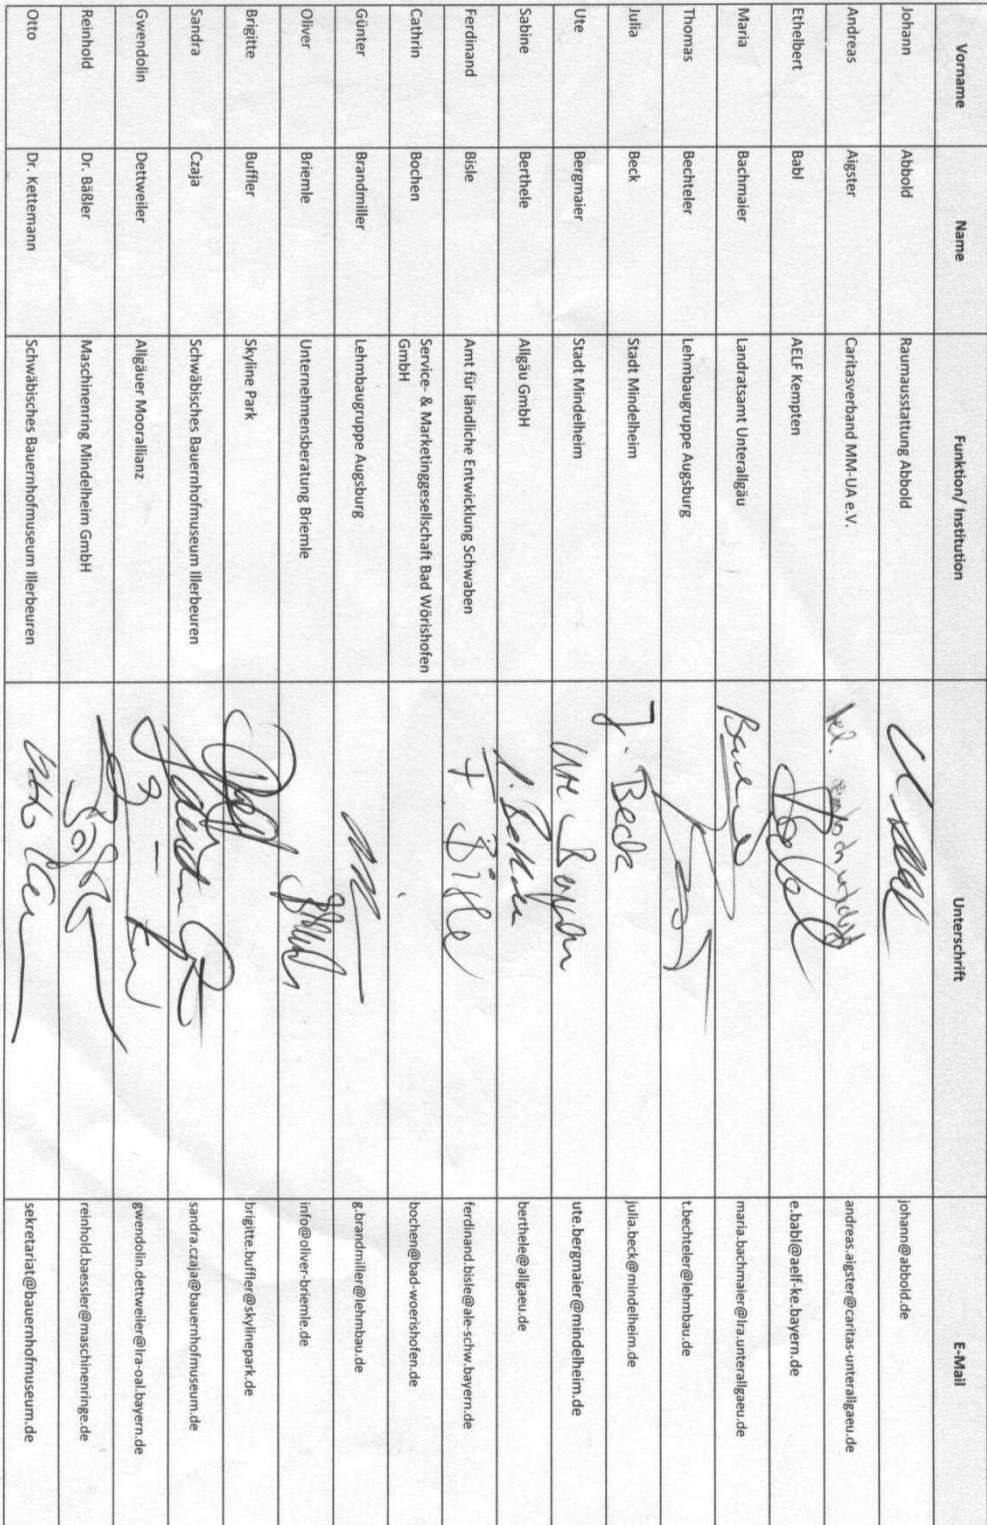 Vorname Name Funktion/ Institution Unterschrift E-Mail
Johann Abbold Raumausstattung Abbold johann@abbold.de
Andreas Aigster Caritasverband MM-UA e.V. andreas.aigster@caritas-unterallgaeu.de
Ethelbert Babl AELF Kempten e.babl@aelf-ke.bayern.de
Maria Bachmaier Landratsamt Unterallgäu maria.bachmaier@lra.unterallgaeu.de
Thomas Bechteler Lehmbaugruppe Augsburg t.bechteler@lehmbau.de
Julia Beck Stadt Mindelheim J. Beck julia.beck@mindelheim.de
Ute Bergmaier Stadt Mindelheim Ute ute.bergmaier@mindelheim.de
Sabine Berthele Allgäu GmbH berthele@allgaeu.de
Ferdinand Bisle Amt für ländliche Entwicklung Schwaben F Bisle ferdinand.bisle@ale-schw.bayern.de
Cathrin Bochen Service- & Marketinggesellschaft Bad Wörishofen bochen@bad-woerishofen.de
GmbH
Günter Brandmiller Lehmbaugruppe Augsburg g.brandmiller@lehmbau.de
Oliver Briemle Unternehmensberatung Briemle info@oliver-briemle.de
Brigitte Buffler Skyline Park brigitte.buffler@skylinepark.de
Sandra Czaja Schwäbisches Bauernhofmuseum Illerbeuren sandra.czaja@bauernhofmuseum.de
Gwendolin Dettweiler Allgäuer Moorallianz gwendolin.dettweiler@lra-oal.bayern.de
Reinhold Dr. Bäßler Maschinenring Mindelheim GmbH reinhold.baessler@maschinenringe.de
Otto Dr. Kettemann Schwäbisches Bauernhofmuseum Illerbeuren sekretariat@bauernhofmuseum.de